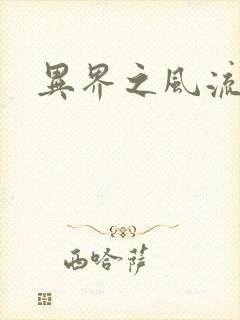 異界之風流
西哈薩